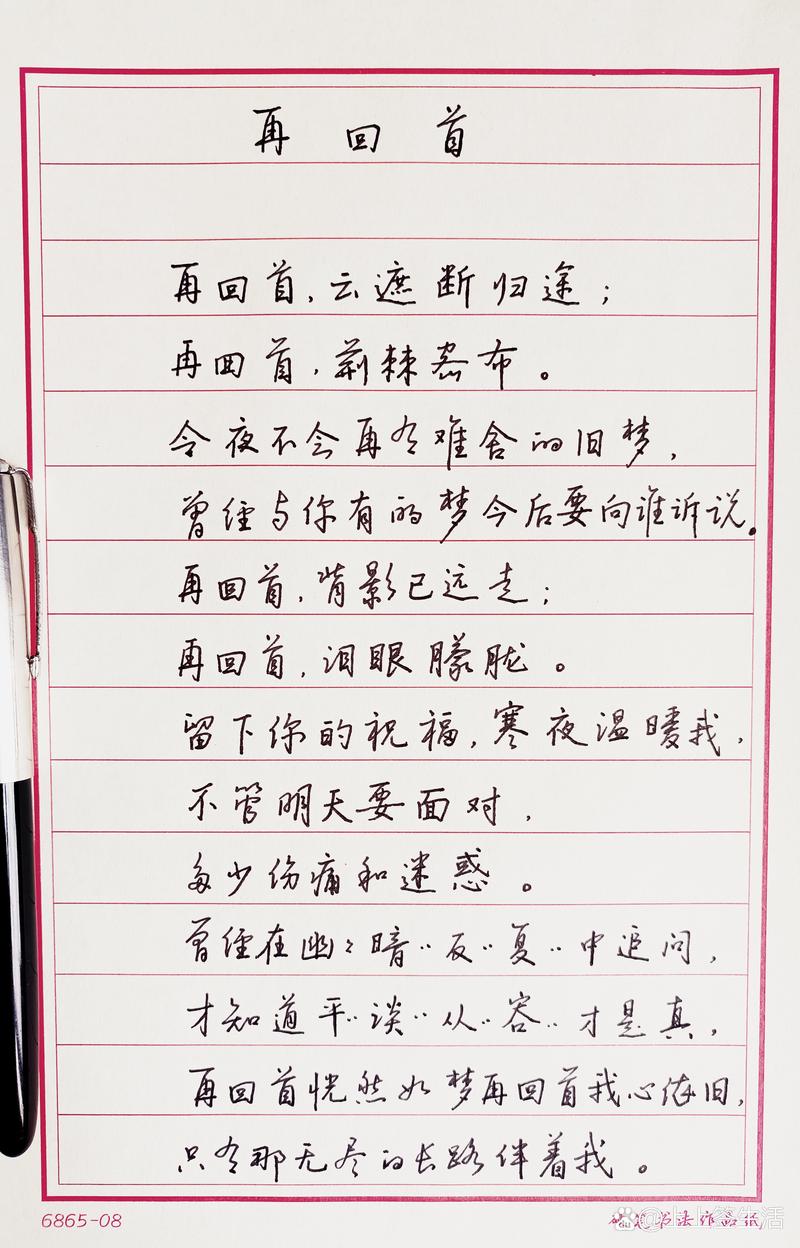 再回首
再回首，云遮断归途；
再回首，荆棘密布。
今夜不会再有难舍的旧梦，
曾经与你有的梦今后要向谁诉说。
再回首，背影已远走；
再回首，泪眼朦胧。
留下你的祝福，寒夜温暖我，
不管明天要面对，
多少伤痛和迷惑。
曾经在幽〻暗〻反〻复〻中追问，
才知道平〻淡〻从〻容〻才是真，
再回首恍然如梦再回首我心依旧，
只有那无尽的长路伴着我。
6865-08
硬笔书法作品纸
@上上签生活